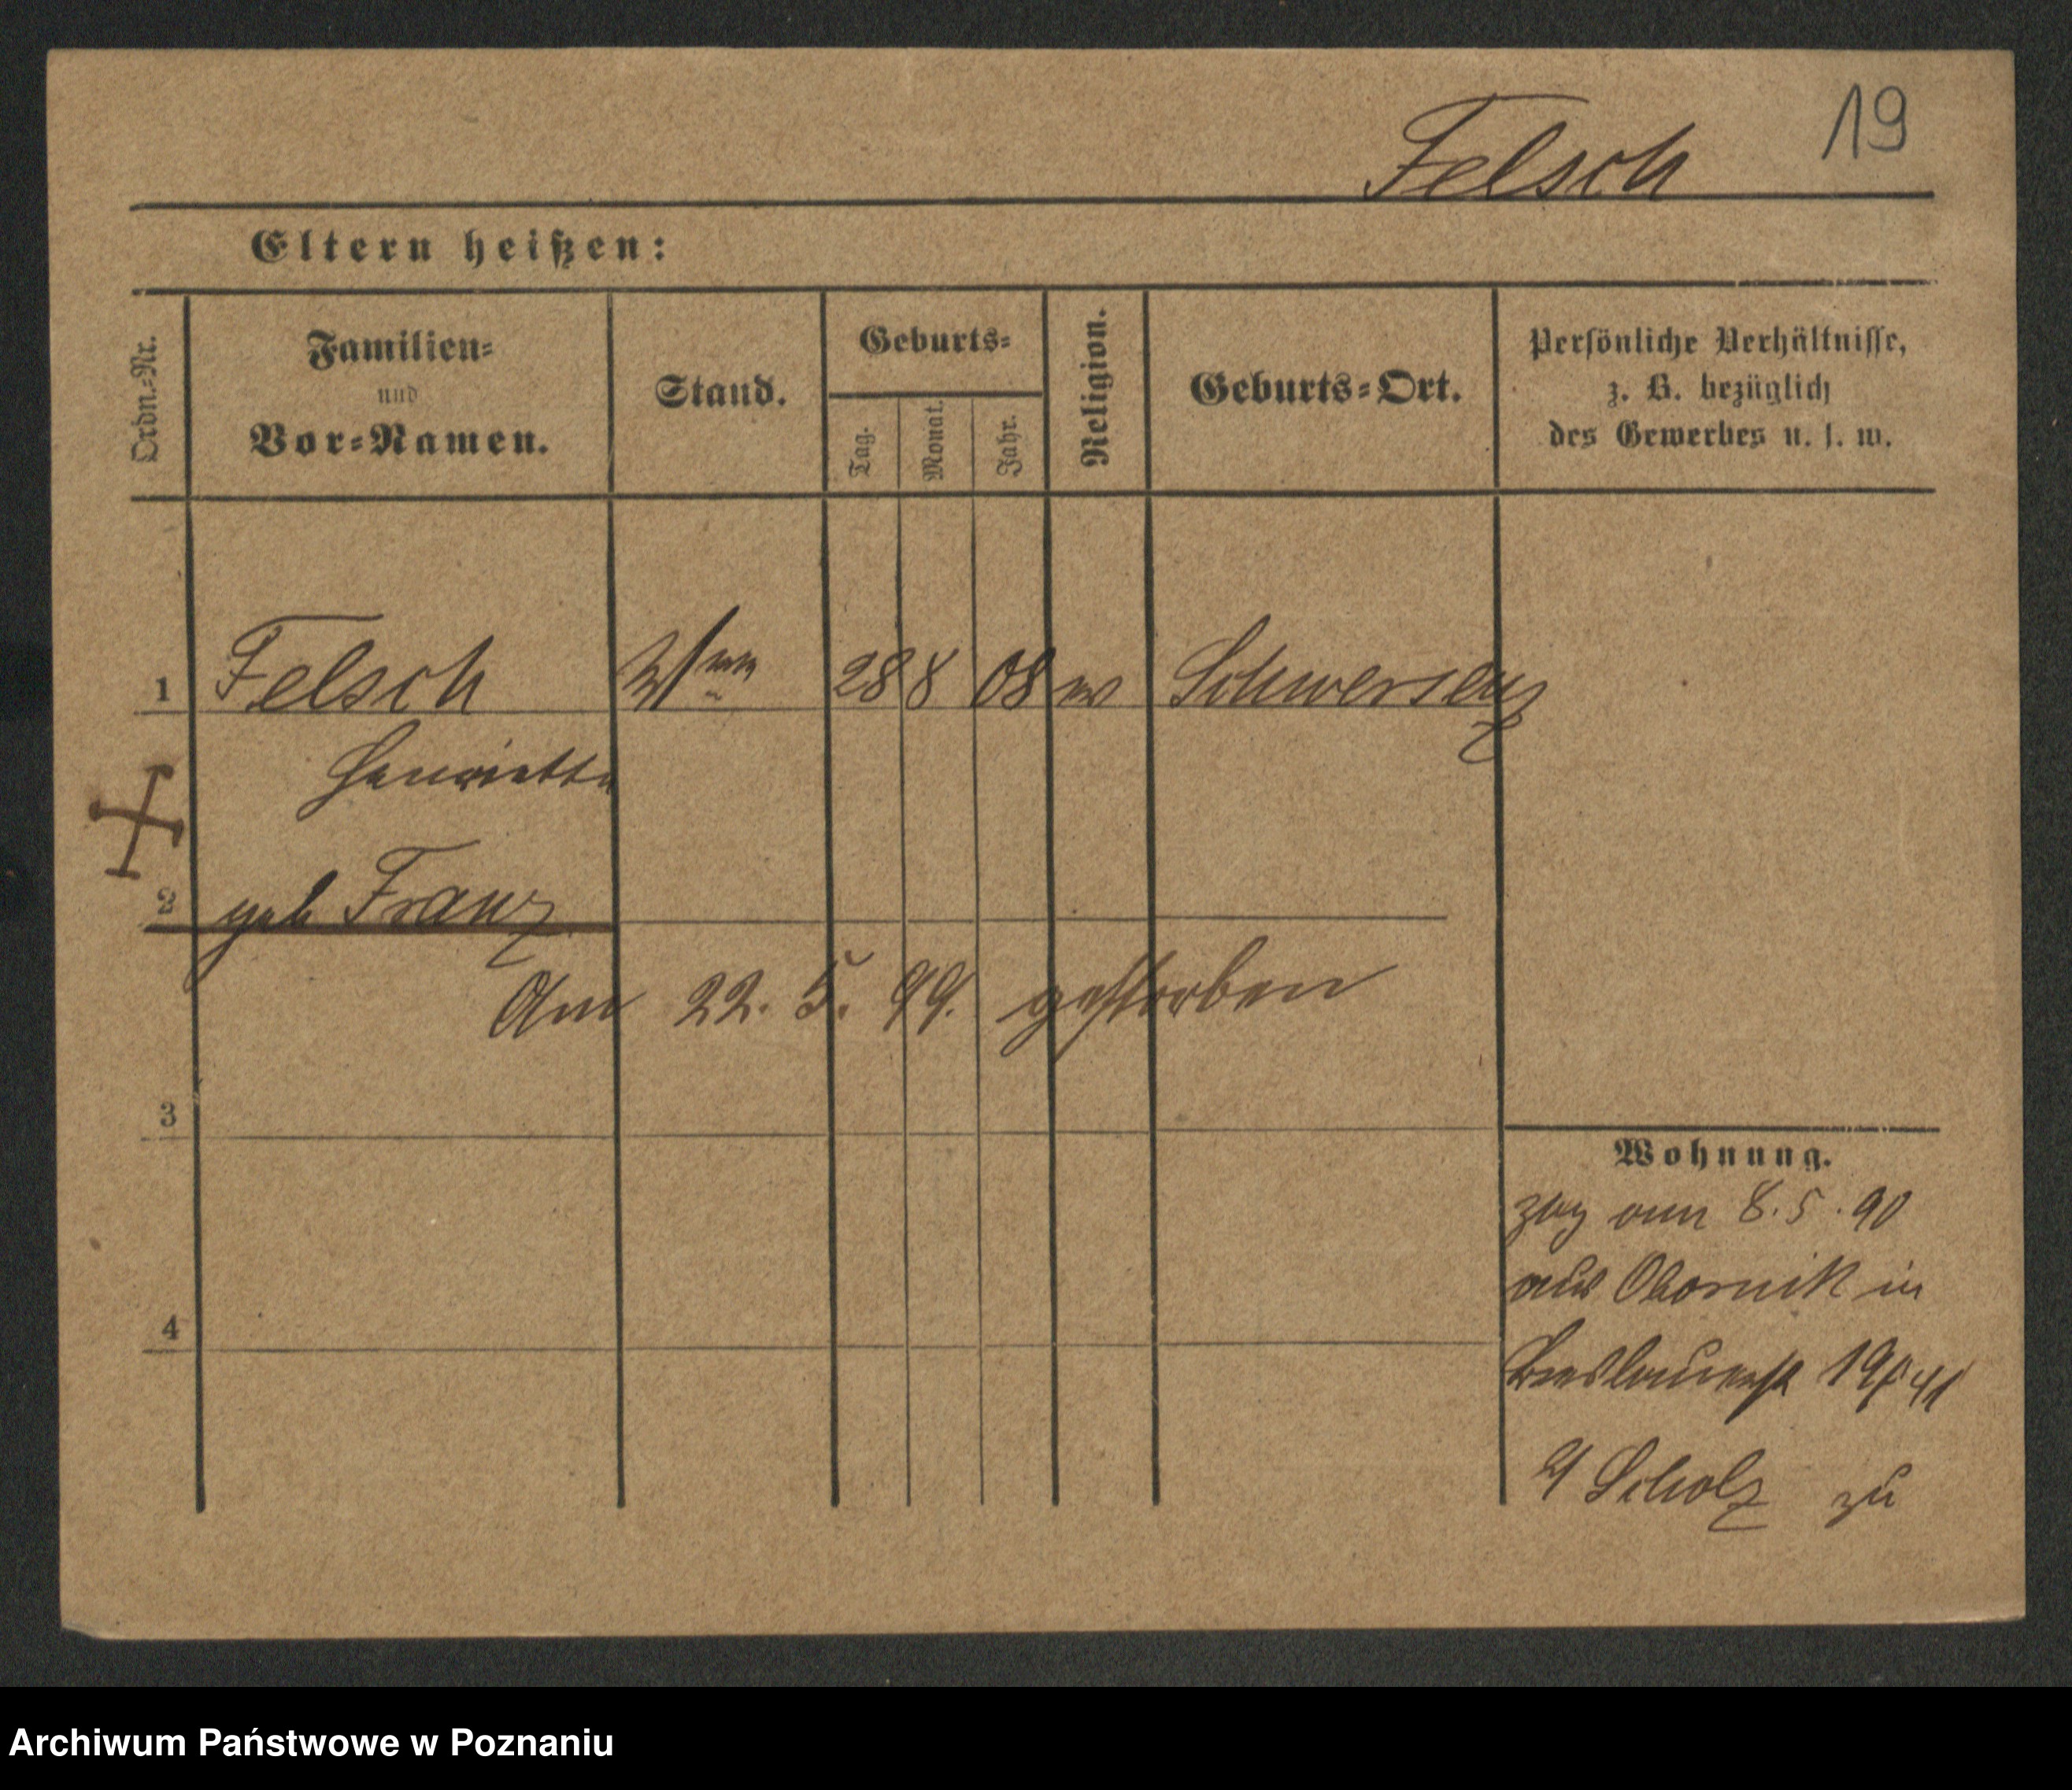 19
Felsch
Eltern heißen:
Ordn.-Nr.
Familien-
und
Vor-Namen.
Stand.
Geburts-
Tag.
Monat.
Jahr.
Religion.
Geburts-Ort.
Persönliche Verhältnisse,
z. B. bezüglich
des Gewerbes u. s. w.
1 Felsch 28 8 08 Schwersenz
Henriette
2 geb Franz
Am 22. 5. 99. gestorben
3
4
Wohnung.
zog am 8.5.90
aus Obornik in
Breslauerst 19/41
Scholz zu
Archiwum Państwowe w Poznaniu